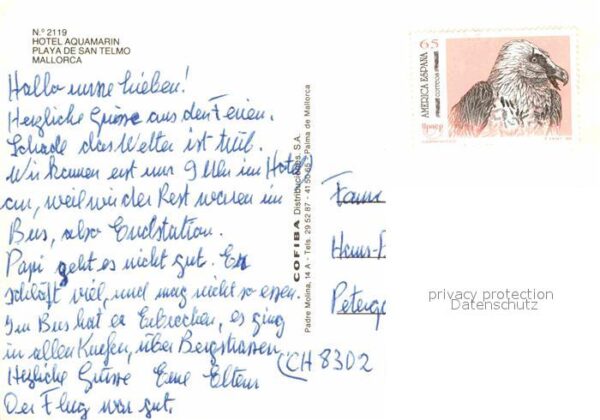 N.º 2119
HOTEL AQUAMARIN
PLAYA DE SAN TELMO
MALLORCA
Hallo unsre lieben!
Herzliche Grüsse aus den Ferien.
Schade das Wetter ist trüb.
Wir kamen erst um 9 Uhr im Hotel
an, weil wir der Rest waren im
Bus, also Endstation.
Papi geht es nicht gut. Er
schläft viel, und mag nicht so essen.
Im Bus hat er Erbrochen, es ging
in allen Kurfen, über Bergstrassen
Herzliche Grüsse Eure Eltern
Der Flug war gut.
COFIBA Distribuciones, S.A.
Padre Molina, 14 A - Tels. 29 52 87 - 41 50 65 - Palma de Mallorca
65
AMERICA ESPAÑA
CORREOS
Upaep
Fam
Hans-
Peterg
CH 8302
privacy protection
Datenschutz